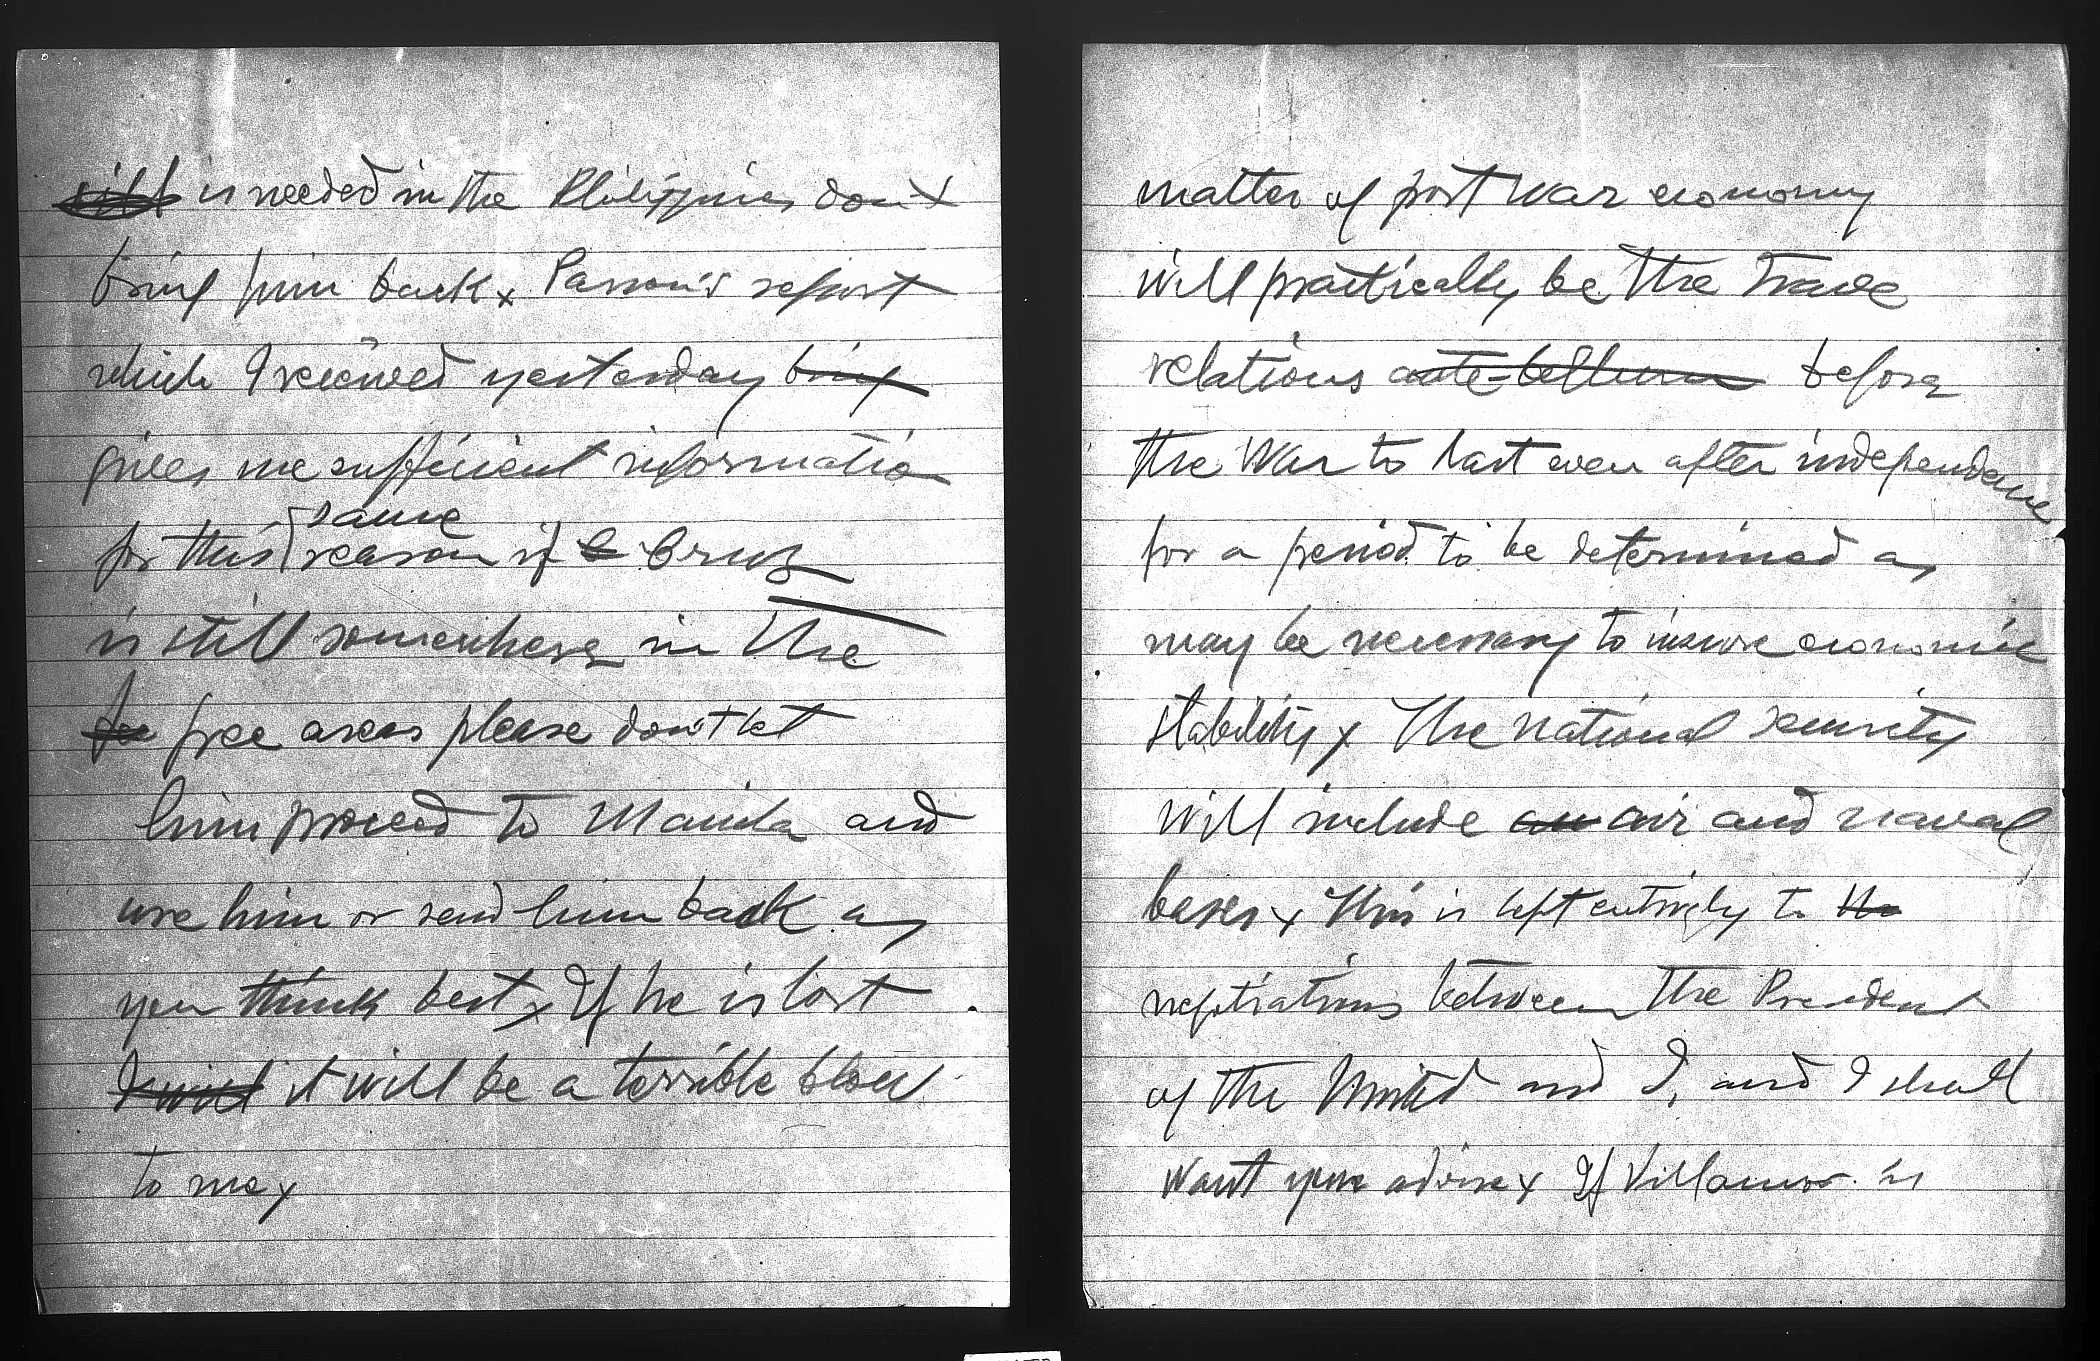 is needed in the Philippines don't
bring him back x Parson's report
which I received yesterday bring
gives me sufficient information
same
for this reason if Cruz
is still somewhere in the
free areas please don't let
him proceed to Manila and
use him or send him back as
you think best x If he is lost
I will it will be a terrible blow
to me x
matter of post war economy
will practically be the trade
relations ante-bellum before
the War to last even after independence
for a period to be determined as
may be necessary to insure economic
stability x The national security
will include an air and naval
bases x This is left entirely to the
negotiations between the President
of the United and I, and I shall
want your advise x If Villamor is